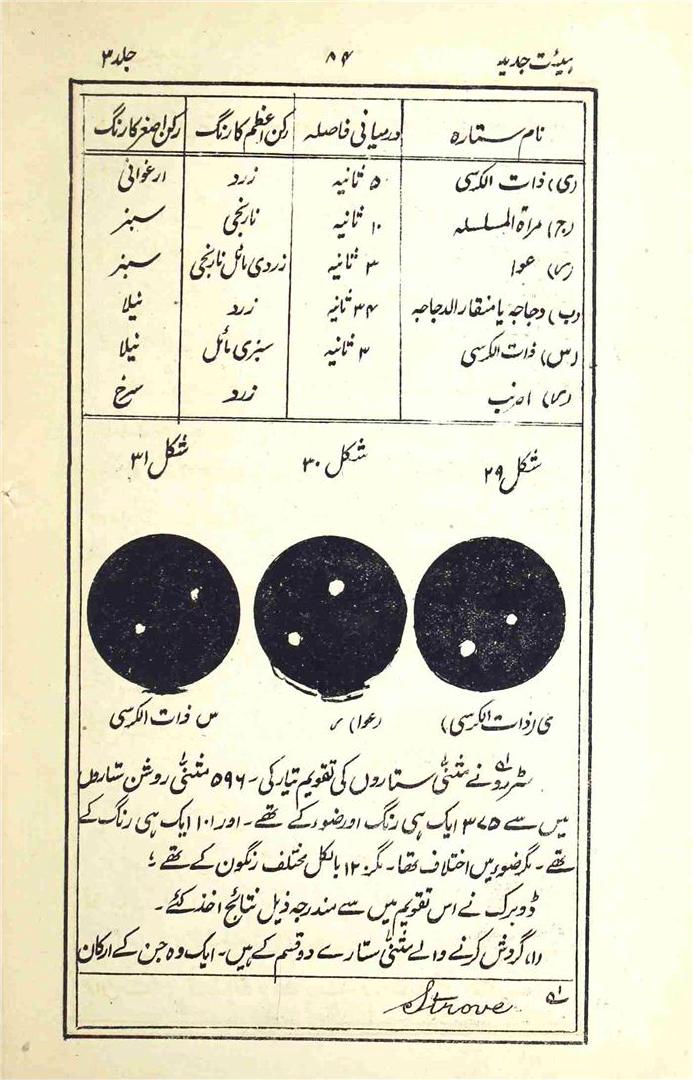 ہیئت جدید ۸۴ جلد ۳
نام ستارہ درمیانی فاصلہ رکن اعظم کا رنگ رکن اصغر کا رنگ
(ی) ذات الکرسی ۵ ثانیہ زرد ارغوانی
(ج) مراۃ المسلسلہ ۱۰ ثانیہ نارنجی سبز
(ر) عوا ۳ ثانیہ زردی مائل نارنجی سبز
(ب) دجاجہ یا منقار الدجاجہ ۳۴ ثانیہ زرد نیلا
(س) ذات الکرسی ۳ ثانیہ سبزی مائل نیلا
(ر) زرد سرخ
شکل ۲۹ شکل ۳۰ شکل ۳۱
ی (ذات الکرسی) (عوا) ر س ذات الکرسی
سٹروو نے مثنیٰ ستاروں کی تقویم تیار کی۔ ۵۹۶ مثنیٰ روشن ستاروں
میں سے ۳۷۵ ایک ہی رنگ اور ضوء کے تھے۔ اور ۱۰۱ ایک ہی رنگ کے
تھے۔ مگر ضوء میں اختلاف تھا۔ مگر ۱۲۰ بالکل مختلف رنگون کے تھے ؛
ڈوبرک نے اس تقویم میں سے مندرجہ ذیل نتائج اخذ کئے۔
(۱) گردش کرنے والے مثنیٰ ستارے دو قسم کے ہیں۔ ایک وہ جن کے ارکان
۱؎ Strove